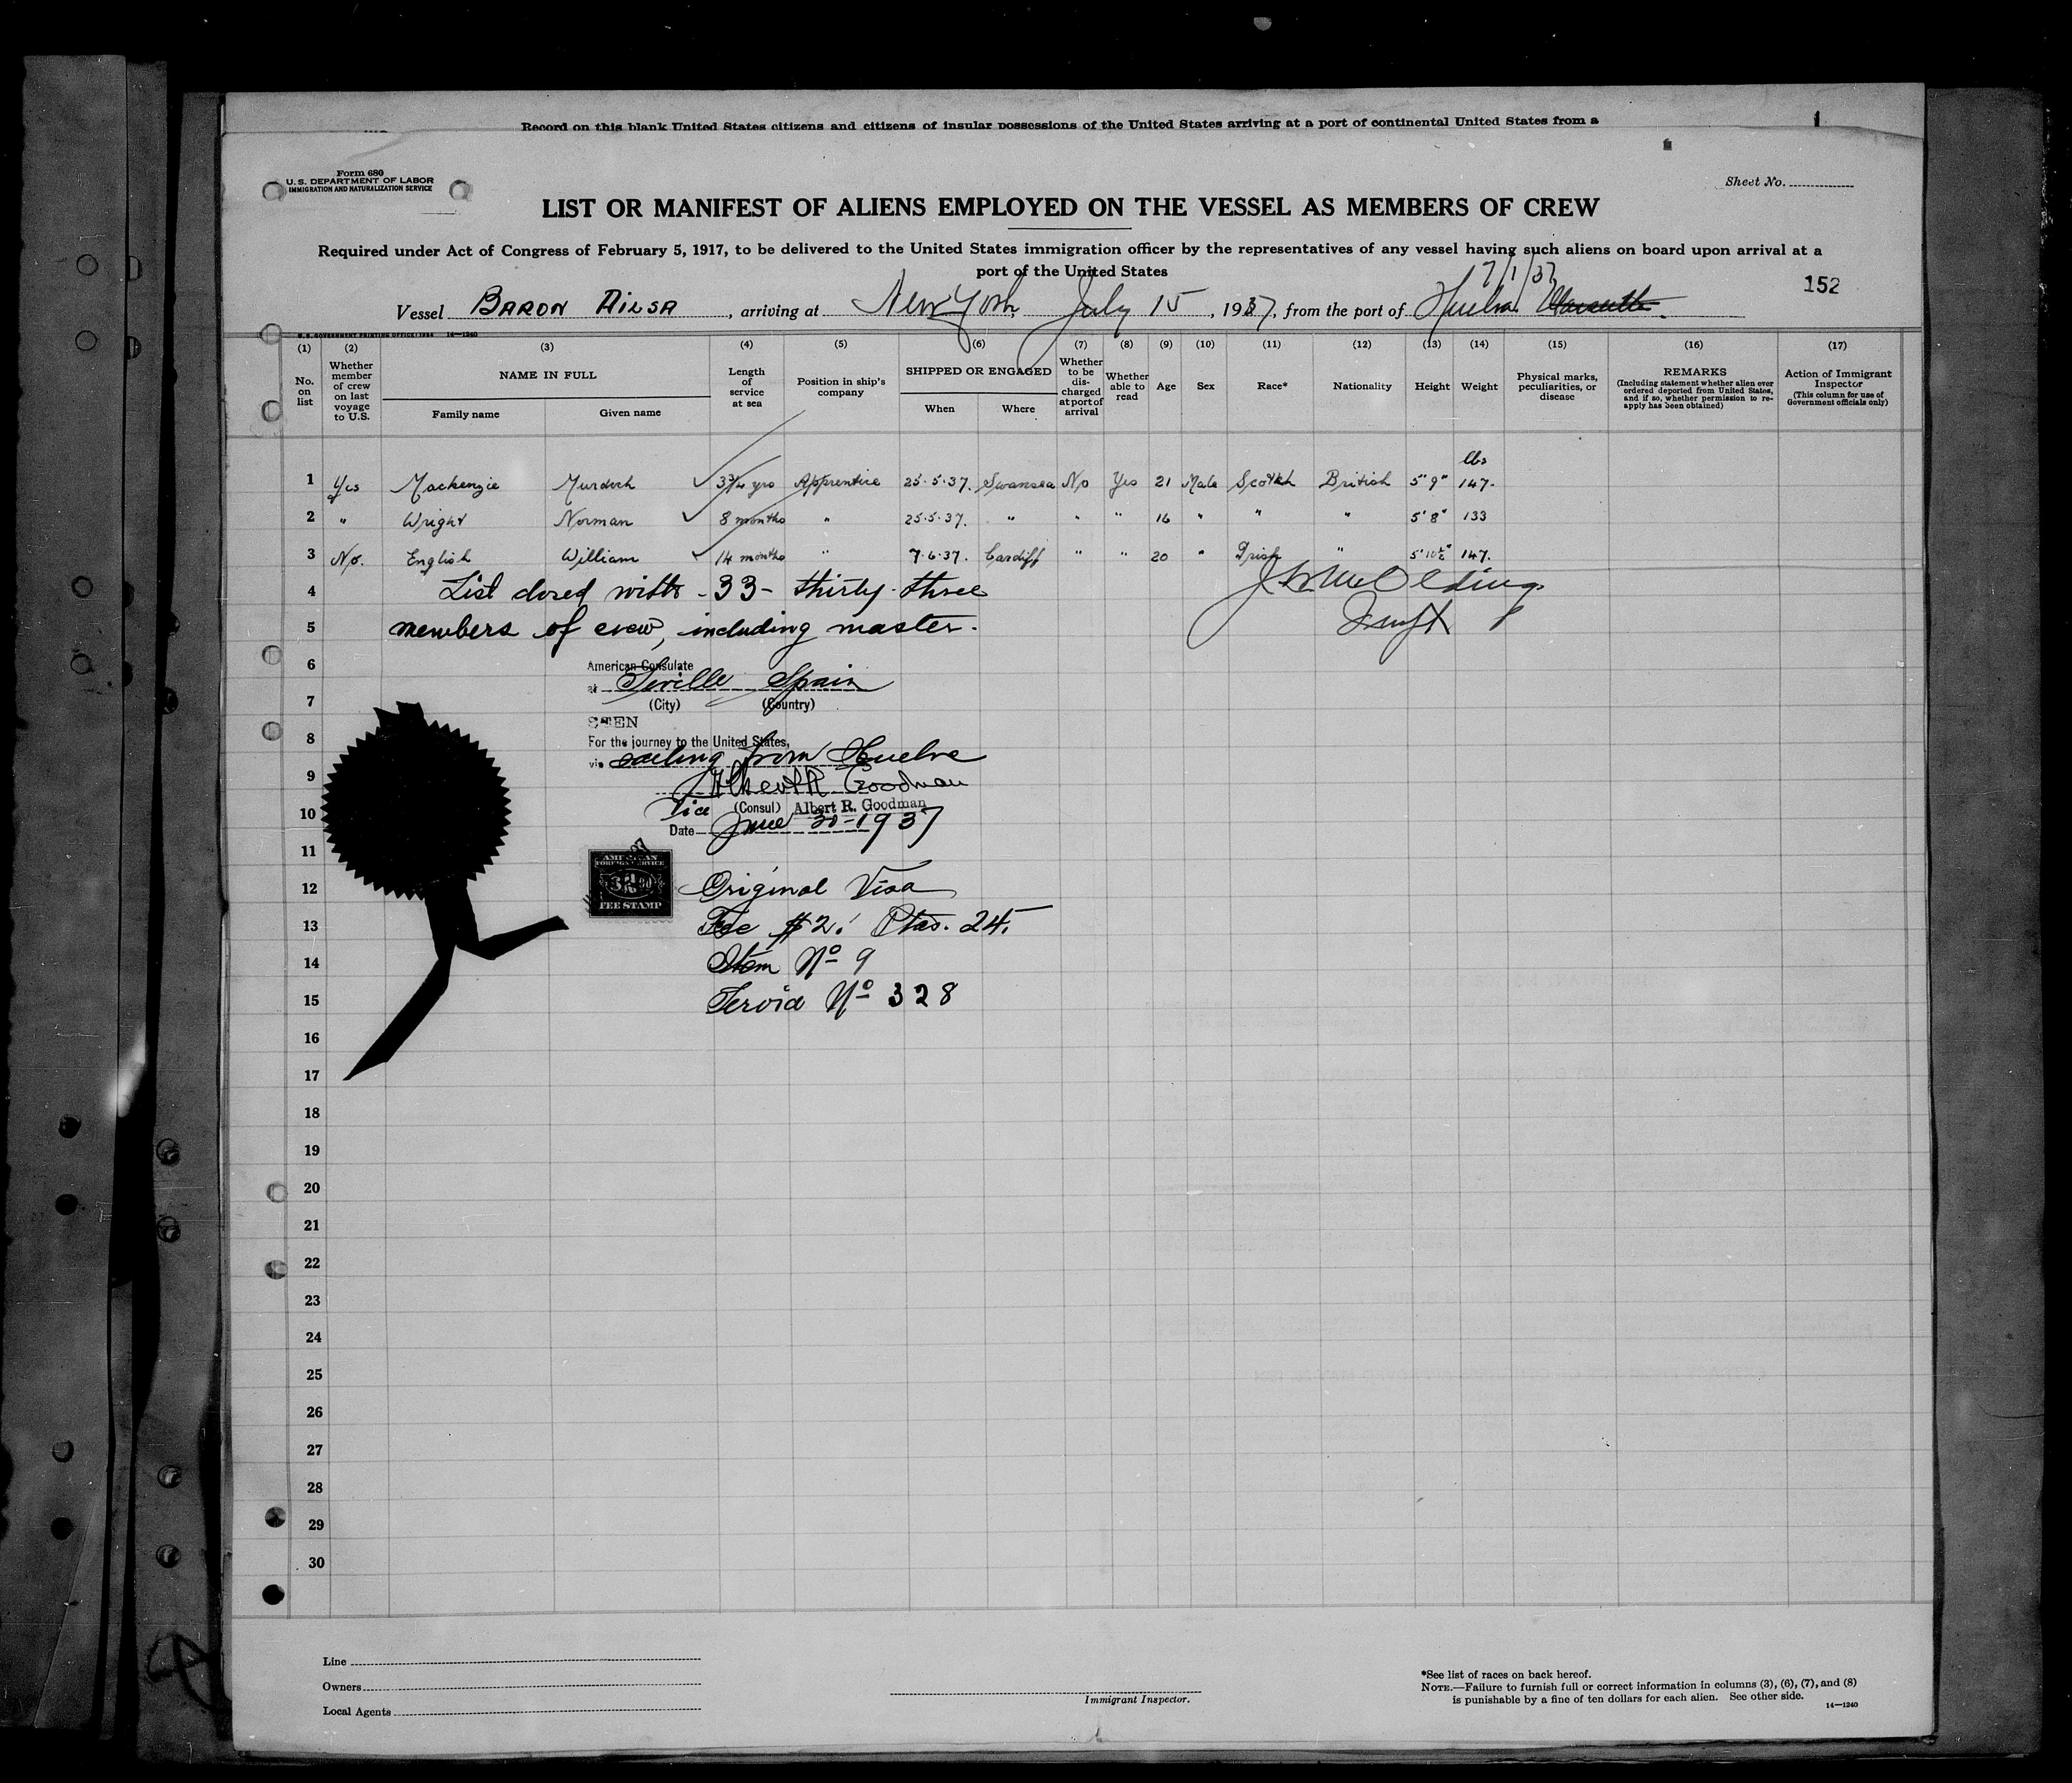 Record on this blank United States citizens and citizens of insular possessions of the United States arriving at a port of continental United States from a
Form 680
U. S. DEPARTMENT OF LABOR
IMMIGRATION AND NATURALIZATION SERVICE
Sheet No.
LIST OR MANIFEST OF ALIENS EMPLOYED ON THE VESSEL AS MEMBERS OF CREW
Required under Act of Congress of February 5, 1917, to be delivered to the United States immigration officer by the representatives of any vessel having such aliens on board upon arrival at a
port of the United States
7/1/37
152
Vessel BARON AILSA, arriving at New York, July 15, 1937, from the port of Huelva
U. S. GOVERNMENT PRINTING OFFICE: 1934 14—1240
(1) (2) (3) (4) (5) (6) (7) (8) (9) (10) (11) (12) (13) (14) (15) (16) (17)
No. on list
Whether member of crew on last voyage to U.S.
NAME IN FULL
Family name
Given name
Length of service at sea
Position in ship's company
SHIPPED OR ENGAGED
When
Where
Whether to be discharged at port of arrival
Whether able to read
Age
Sex
Race*
Nationality
Height
Weight
Physical marks, peculiarities, or disease
REMARKS
(Including statement whether alien ever ordered deported from United States, and if so, whether permission to re-apply has been obtained)
Action of Immigrant Inspector
(This column for use of Government officials only)
lbs
1 Yes Mackenzie Murdoch yrs Apprentice 25.5.37. Swansea No Yes 21 Male Scotch British 5' 9" 147.
2 " Wright Norman 8 months " 25.5.37. " " " 16 " " " 5' 8" 133
3 No. English William 14 months " 7.6.37. Cardiff " " 20 " Irish " 5' 10½" 147.
4 List closed with - 33 - thirty-three
5 members of crew, including master.
6 American Consulate
at Seville Spain
7 (City) (Country)
8 For the journey to the United States,
9 via sailing from Huelva
Albert R. Goodman
10 Vice (Consul) Albert R. Goodman
Date June 30-1937
11 AMERICAN
FOREIGN SERVICE
FEE STAMP
12 Original Visa
13 Fee $2. Ptas. 24.
14 Item Nº 9
15 Servic Nº 328
16
17
18
19
20
21
22
23
24
25
26
27
28
29
30
Line
Owners
Local Agents
Immigrant Inspector.
*See list of races on back hereof.
NOTE.—Failure to furnish full or correct information in columns (3), (6), (7), and (8)
is punishable by a fine of ten dollars for each alien. See other side.
14—1240